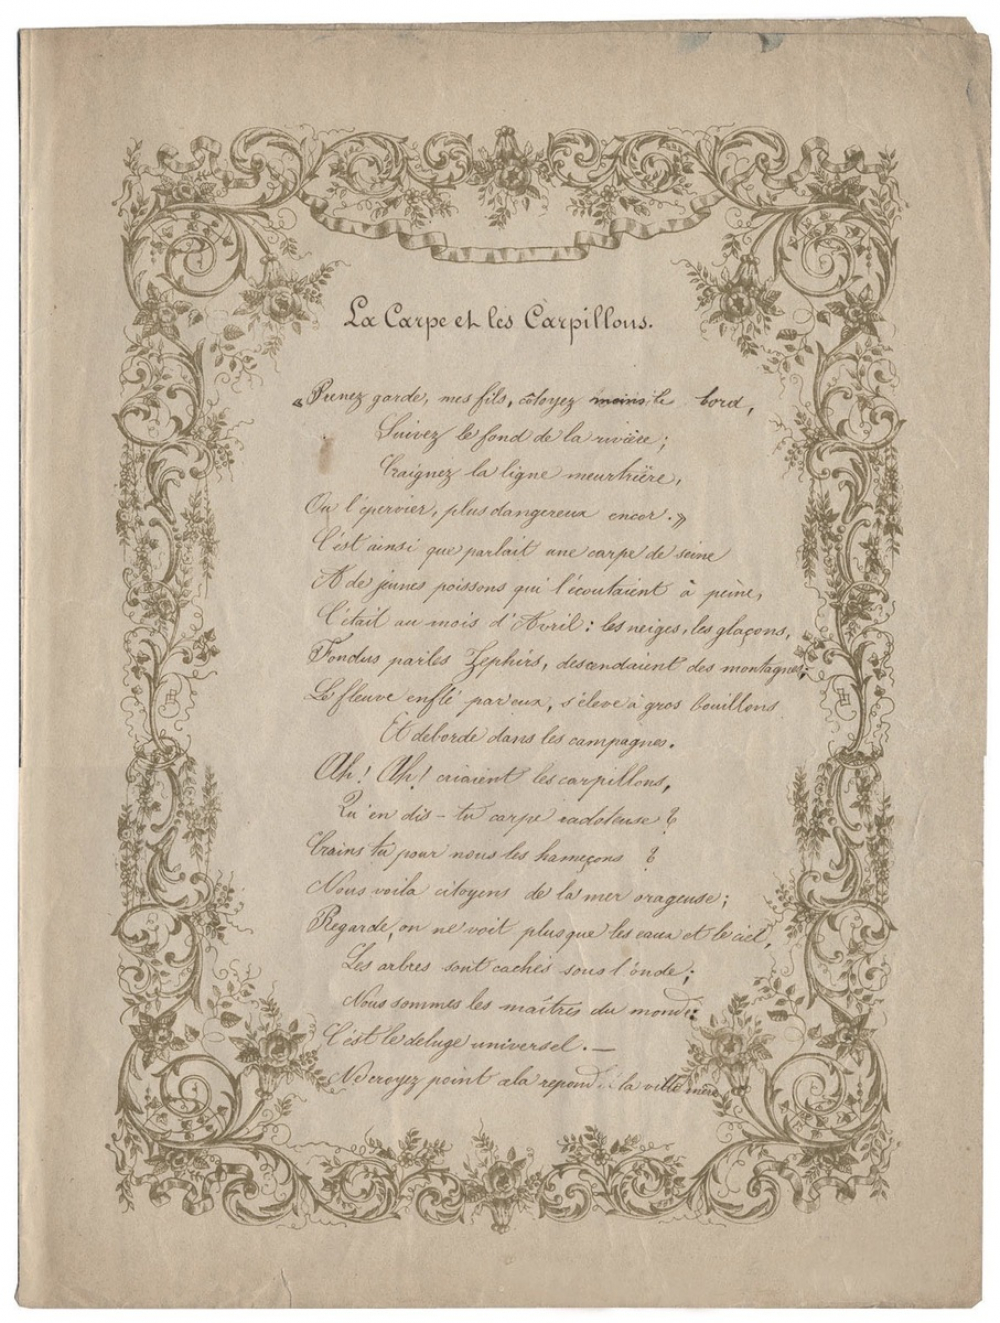 La Carpe et les Carpillons.
« Prenez garde, mes fils, côtoyez moins le bord,
Suivez le fond de la rivière ;
Craignez la ligne meurtrière,
Ou l'épervier, plus dangereux encor. »
C'est ainsi que parlait une carpe de seine
A de jeunes poissons qui l'écoutaient à peine,
C'était au mois d'Avril : les neiges, les glaçons,
Fondus par les Zephirs, descendaient des montagnes;
Le fleuve enflé par eux, s'éleve à gros bouillons
Et deborde dans les campagnes.
Ah ! Ah ! criaient les carpillons,
Qu'en dis - tu carpe radoteuse ?
Crains tu pour nous les hameçons ?
Nous voila citoyens de la mer orageuse ;
Regarde, on ne voit plus que les eaux et le ciel,
Les arbres sont cachés sous l'onde ;
Nous sommes les maîtres du monde
C'est le deluge universel. —
Ne croyez point cela repond la mère